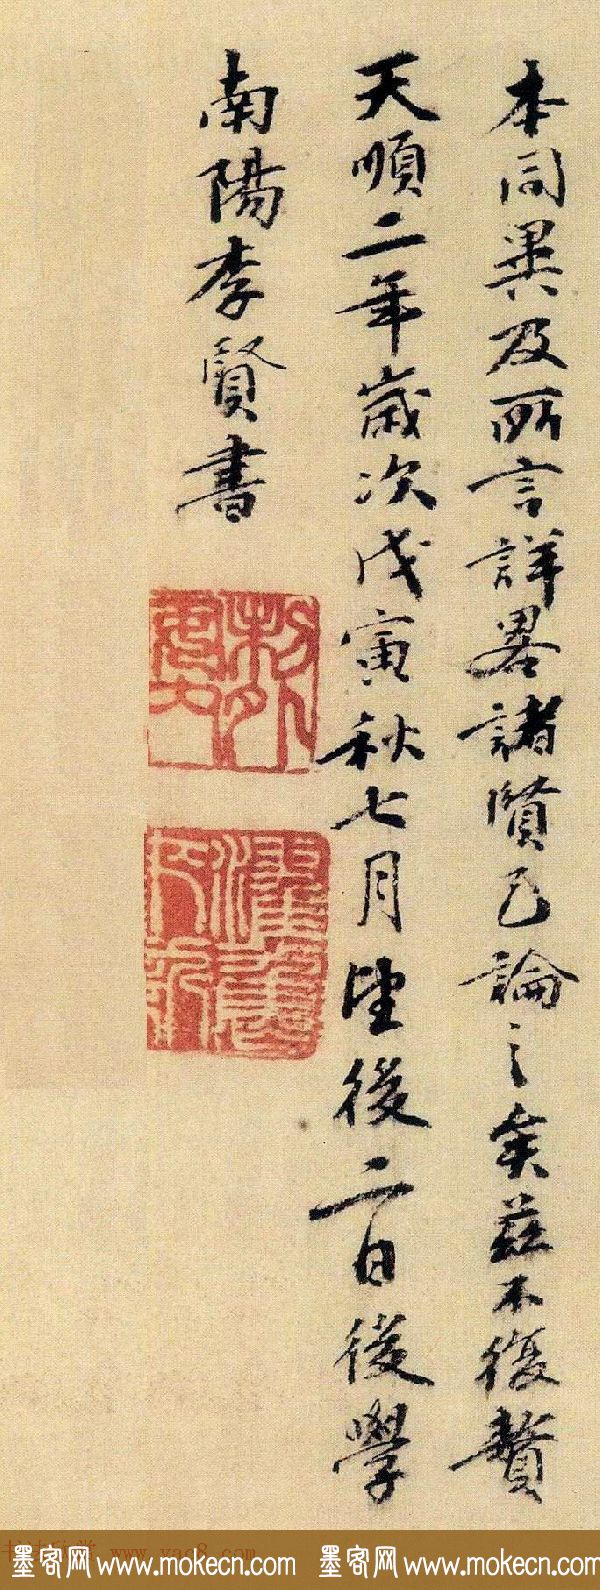 本同異及所言詳畧諸賢已論之矣茲不復贅
天順二年歲次戊寅秋七月望後二日後學
南陽李賢書
墨客网 www.mokecn.com 墨客网 www.mokecn.com